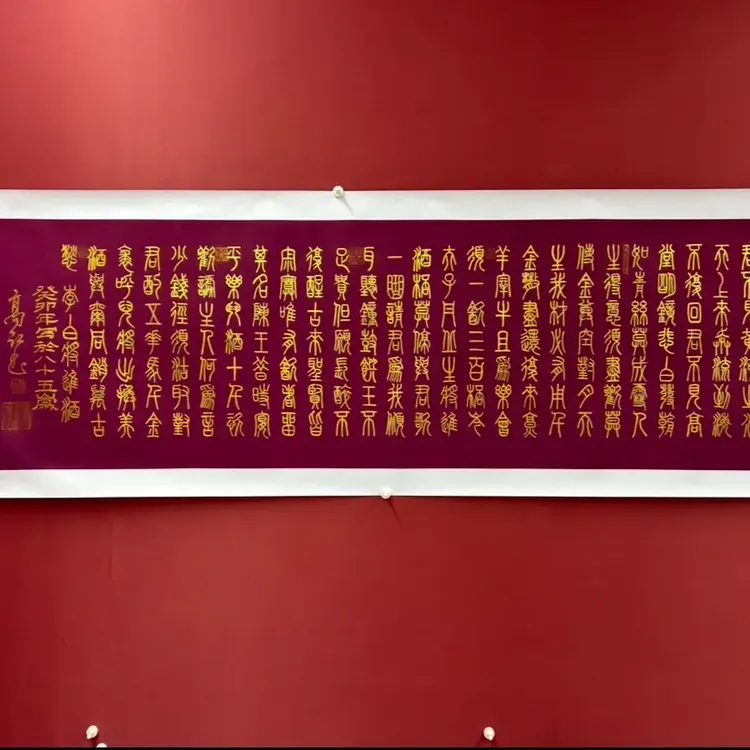 君不見黃河之水
天上來奔流到海
不復回君不見高
堂明鏡悲白髮朝
如青絲暮成雪人
生得意須盡歡莫
使金尊空對月天
生我材必有用千
金散盡還復來烹
羊宰牛且爲樂會
須一飲三百杯岑
夫子丹丘生將進
酒杯莫停與君歌
一曲請君爲我傾
耳聽鐘鼓饌玉不
足貴但願長醉不
復醒古來聖賢皆
寂寞惟有飲者留
其名陳王昔時宴
平樂斗酒十千恣
歡謔主人何爲言
少錢徑須沽取對
君酌五花馬千金
裘呼兒將出換美
酒與爾同銷萬古
愁 李白將進酒
癸卯年書於八十五歲
高